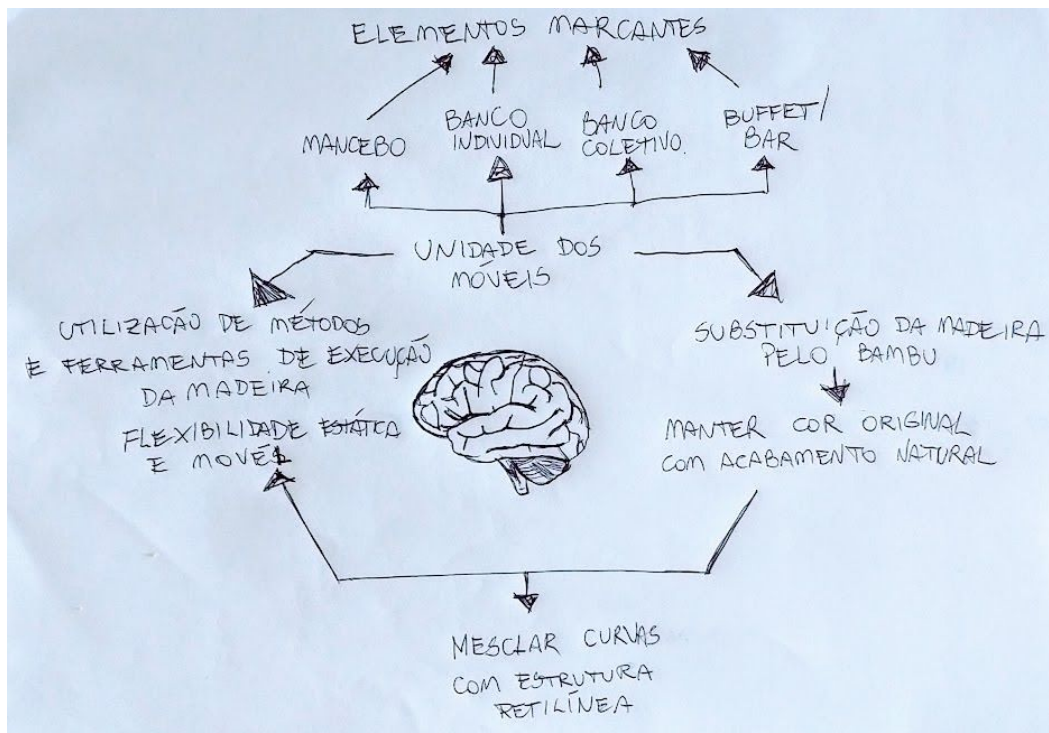 ELEMENTOS MARCANTES
MANCEBO
BANCO
INDIVIDUAL
BANCO
COLETIVO.
BUFFET/
BAR
UNIDADE DOS
MÓVEIS
UTILIZAÇÃO DE MÉTODOS
E FERRAMENTAS DE EXECUÇÃO
DA MADEIRA
FLEXIBILIDADE ESTÁTICA
E MOVÉL
SUBSTITUIÇÃO DA MADEIRA
PELO BAMBU
MANTER COR ORIGINAL
COM ACABAMENTO NATURAL
MESCLAR CURVAS
COM ESTRUTURA
RETILÍNEA